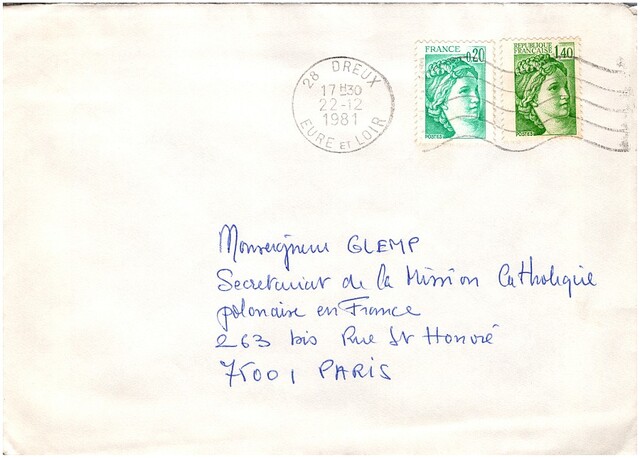 28 DREUX
17H30
22-12
1981
EURE ET LOIR
FRANCE
0,20
REPUBLIQUE
FRANÇAISE
1,40
Monseigneur GLEMP
Secretariat de la Mission Catholique
polonaise en France
263 bis Rue St Honoré
75001 PARIS